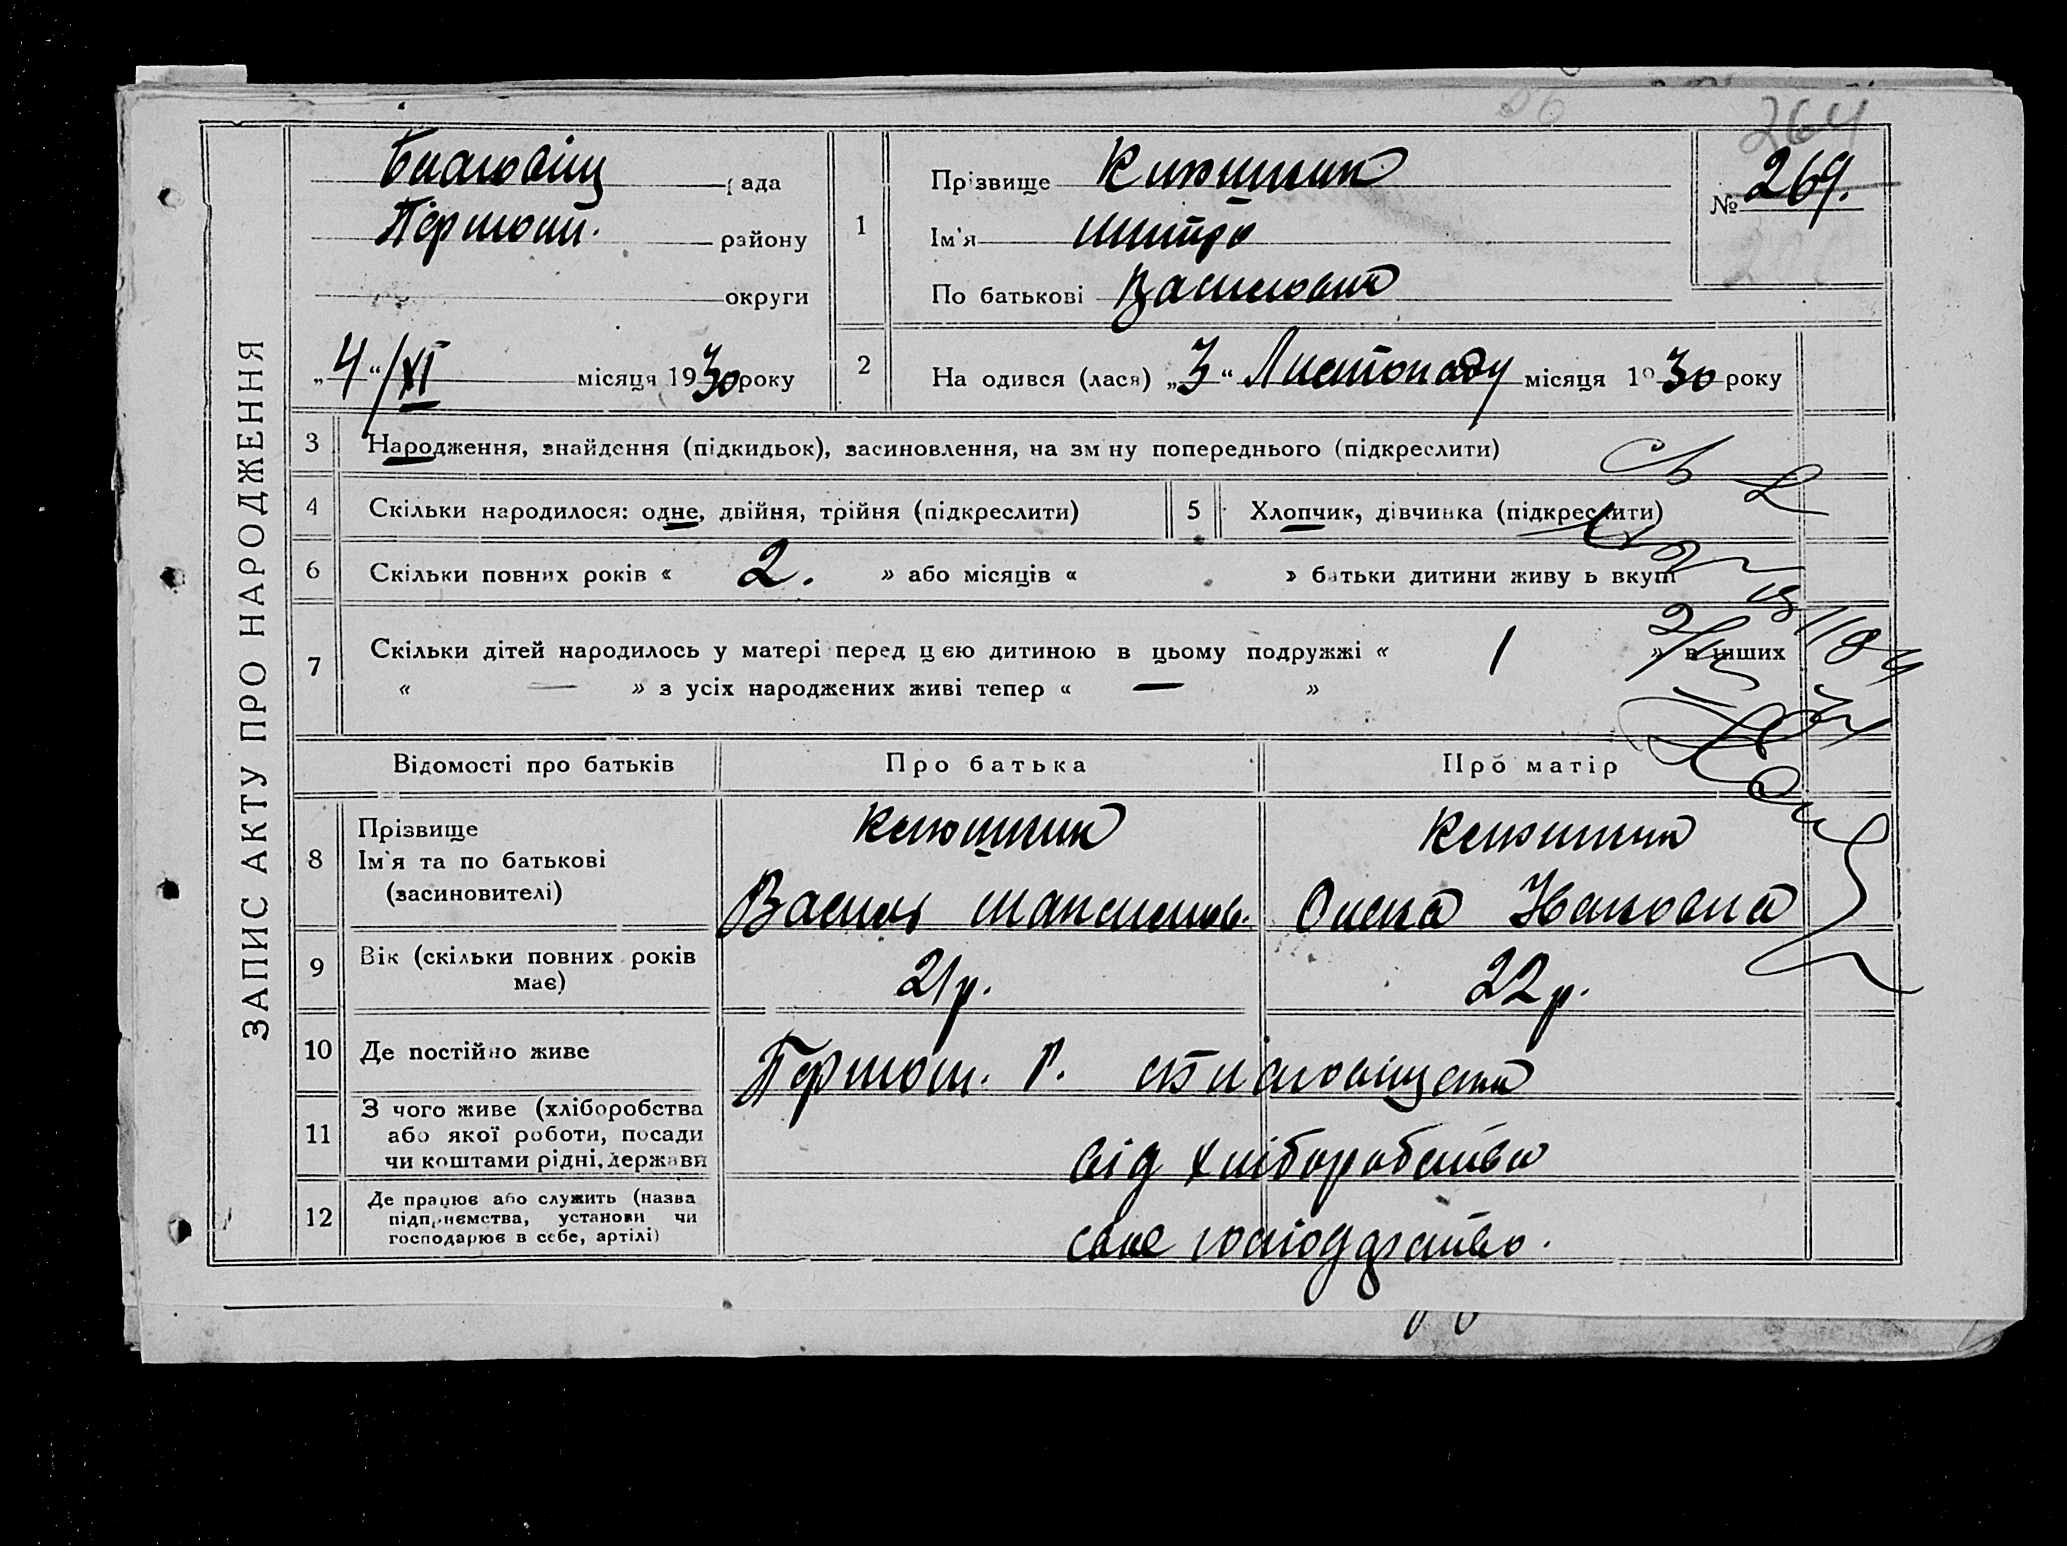 264
Благовіщ рада
Першом. району
округи
„4“/XI місяця 1930 року
1
Прізвище Клюшник
Ім'я Митро
По батькові Васильович
№ 269.
2
На одився (лася) „3“ Листопаду місяця 1930 року
ЗАПИС АКТУ ПРО НАРОДЖЕННЯ
3 Народження, знайдення (підкидьок), засиновлення, на зм ну попереднього (підкреслити)
4 Скільки народилося: одне, двійня, трійня (підкреслити) 5 Хлопчик, дівчинка (підкреслити)
6 Скільки повних років « 2. » або місяців « » батьки дитини живу ь вкупі
7 Скільки дітей народилось у матері перед цею дитиною в цьому подружжі « 1 » в інших
« — » з усіх народжених живі тепер « — »
Відомості про батьків Про батька Про матір
8 Прізвище
Ім'я та по батькові
(засиновителі)
Клюшник
Василь Максимов.
Клюшник
Олена
9 Вік (скільки повних років
має)
21 р. 22 р.
10 Де постійно живе Першом. р. с Благовіщенка
11 З чого живе (хліборобства
або якої роботи, посади
чи коштами рідні, держави
від хліборобства
12 Де працює або служить (назва
підприємства, установи чи
господарює в себе, артілі)
своє господарство.